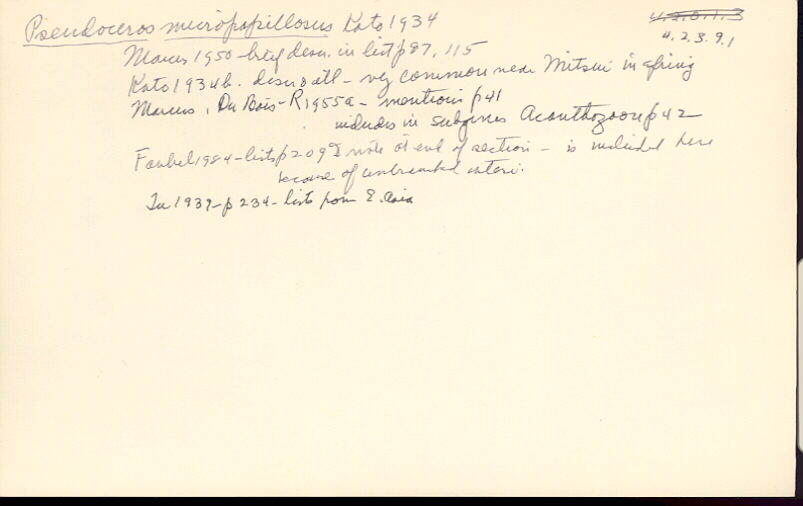 Pseudoceros micropapillosus Kato 1934
4.2.0.1.3
4.2.3.9.1
Marcus 1950 - brief descr. in list p 87, 115
Kato 1934b. descr & ill - very common near Mitsui in spring
Marcus, Du Bois-R 1955a - mentions p 41
includes in subgenus Acanthozoon p 42
Faubel 1984 - lists p 209 & note at end of section - is included here
because of unbranched intesti.
Tu 1939 - p 234 - lists from E. Asia